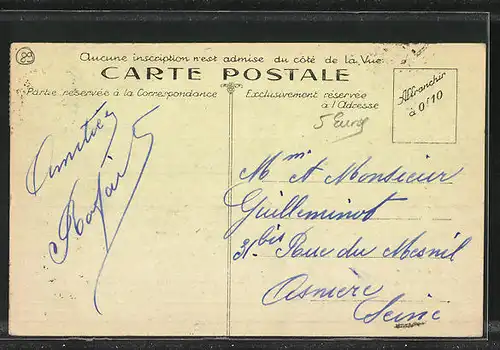 80
Aucune inscription n'est admise du côté de la Vue.
CARTE POSTALE
Partie réservée à la Correspondance
Exclusivement réservée
à l'Adresse
Affranchir
à 0f10
5 Euros
Amitiés
Mme et Monsieur
Guilleminot
bis Rue du Mesnil
Asnière
Seine